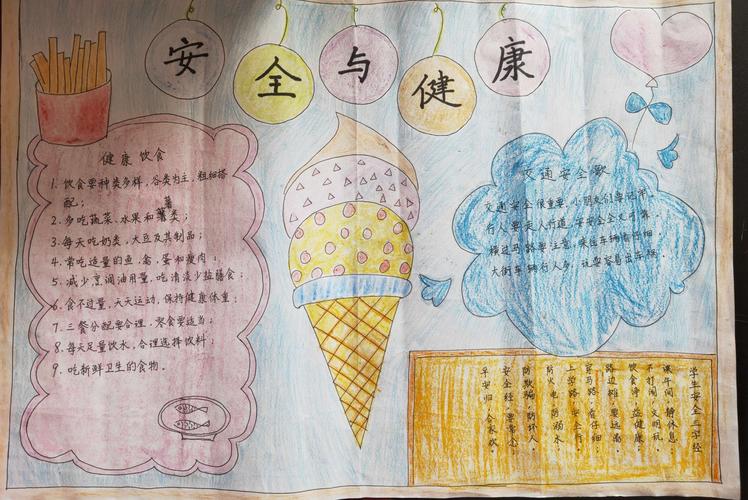 安全与健康
健康饮食
1. 饮食要种类多样,谷类为主,粗细搭
配;
2. 多吃蔬菜、水果和薯类;
3. 每天吃奶类、大豆及其制品;
4. 常吃适量的鱼,禽,蛋和瘦肉;
5. 减少烹调油用量,吃清淡少盐膳食;
6. 食不过量,天天运动,保持健康体重;
7. 三餐分配要合理,零食要适当;
8. 每天足量饮水,合理选择饮料;
9. 吃新鲜卫生的食物。
交通安全歌
交通安全很重要,小朋友们要记牢
行人要走人行道,安安全全又可靠
横过马路要注意,来往车辆看仔细
大街车辆行人多,玩耍容易出车祸。
学生安全三字经
课午间,静休息,
不打闹,文明玩。
饮食净,益健康,
路边摊,要远离。
穿马路,看仔细,
上学路,安全行。
防火电,防溺水,
防欺骗,防坏人。
安全经,要常念,
早安归,合家欢。